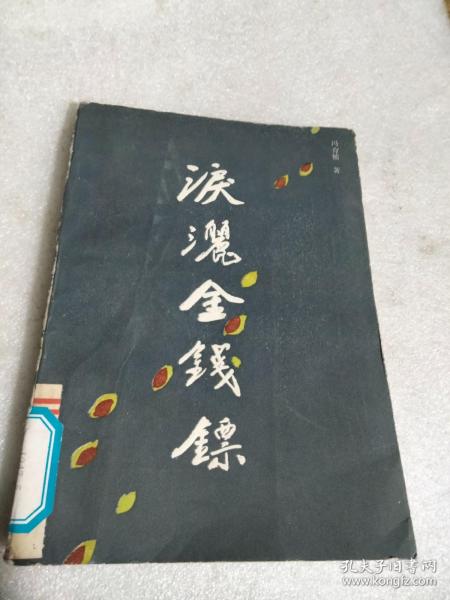 冯育楠 著
淚灑金錢鏢
孔夫子旧书网
www.kongfz.com